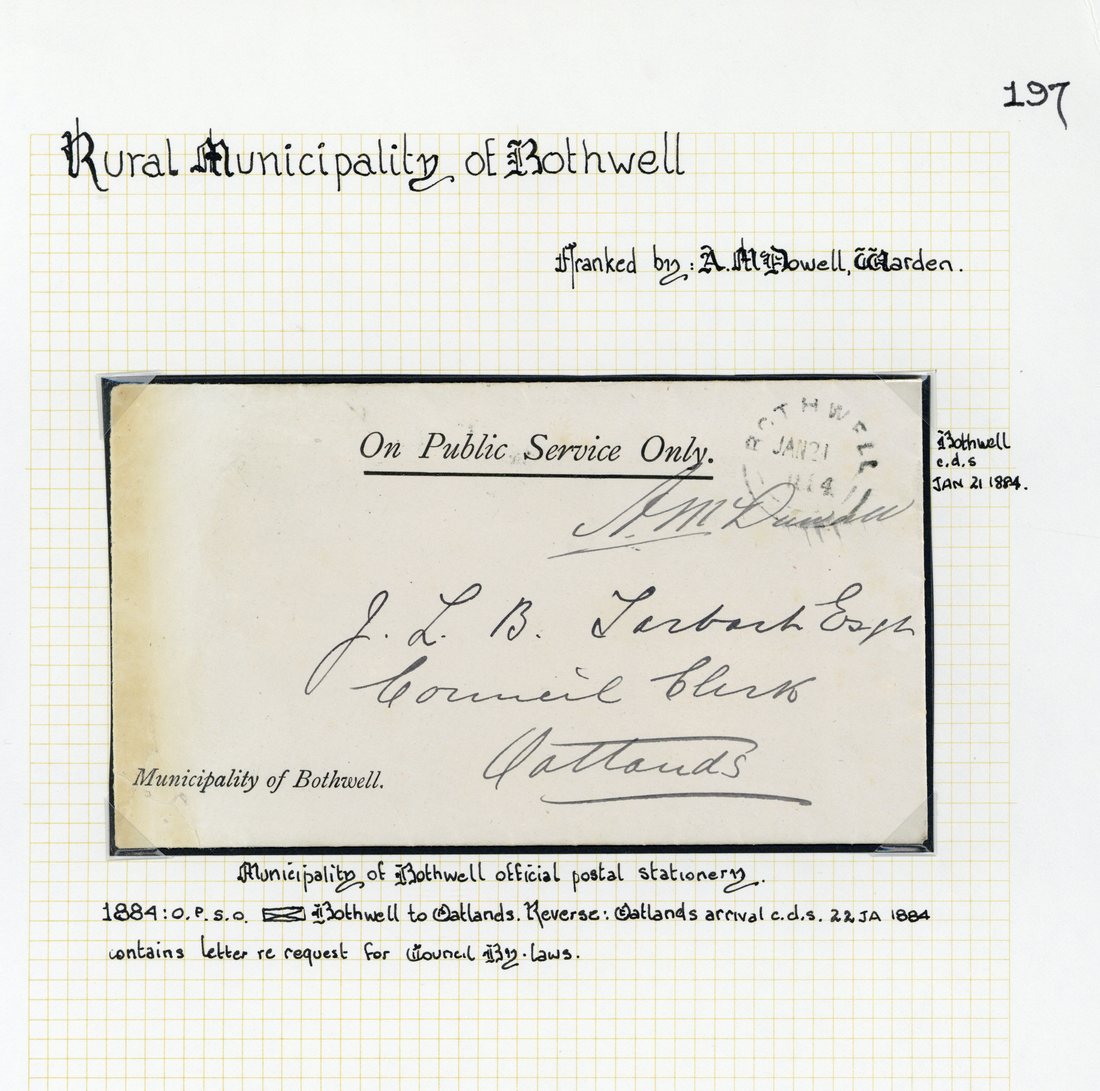 197
Rural Municipality of Bothwell
Franked by: A. McDowell, Warden.
On Public Service Only.
BOTHWELL
JAN 21
Bothwell
c.d.s
JAN 21 1884.
A. Mc
J. L. B. Tarbart Esqr
Council Clerk
Oatlands
Municipality of Bothwell.
Municipality of Bothwell official postal stationery.
1884: O.P.S.O. Bothwell to Oatlands. Reverse: Oatlands arrival c.d.s. 22 JA 1884
contains letter re request for Council By-laws.